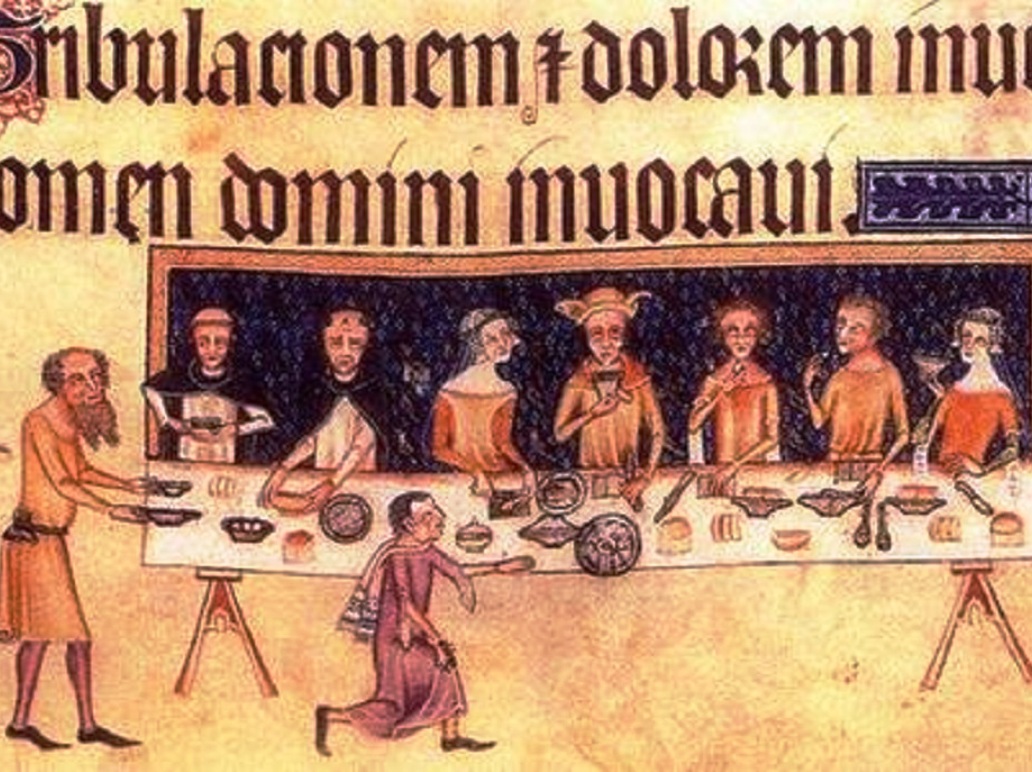 Tribulacionem ⁊ dolorem inu
omen domini inuocaui.